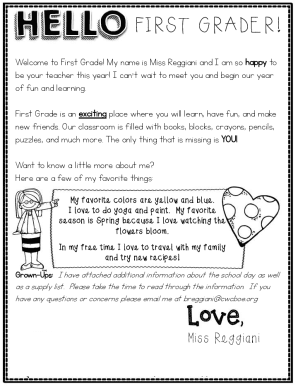 HELLO FIRST GRADER!
Welcome to First Grade! My name is Miss Reggiani and I am so happy to
be your teacher this year! I can't wait to meet you and begin our year
of fun and learning.
First Grade is an exciting place where you will learn, have fun, and make
new friends. Our classroom is filled with books, blocks, crayons, pencils,
puzzles, and much more. The only thing that is missing is YOU!
Want to know a little more about me?
Here are a few of my favorite things:
My favorite colors are yellow and blue.
I love to do yoga and paint. My favorite
season is Spring because I love watching the
flowers bloom.
In my free time I love to travel with my family
and try new recipes!
Grown-Ups: I have attached additional information about the school day as well
as a supply list. Please take the time to read through the information. If you
have any questions or concerns please email me at breggiani@cwcboe.org
Love,
Miss Reggiani